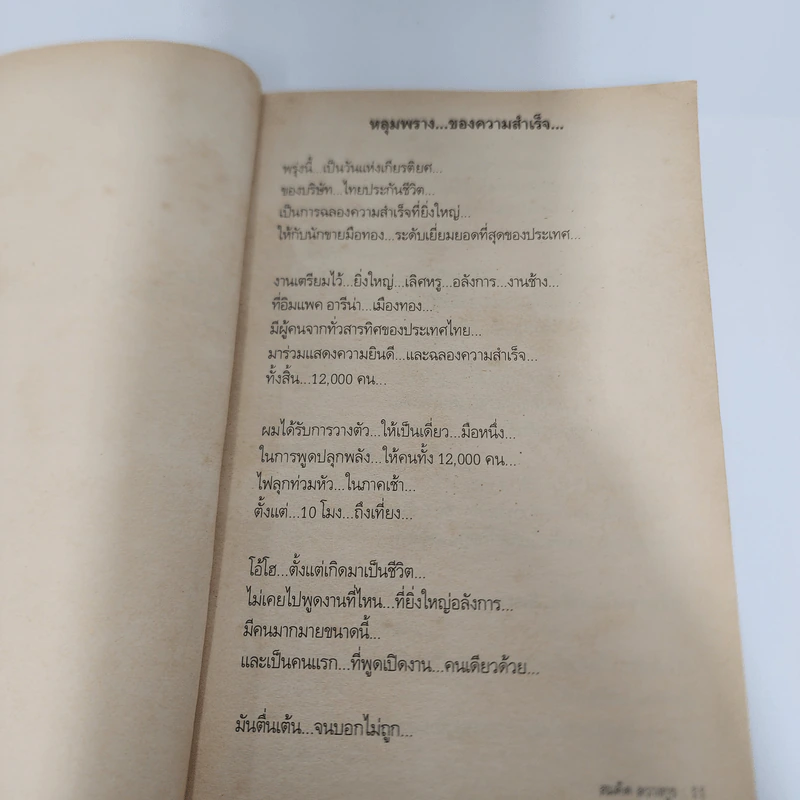 หลุมพราง...ของความสำเร็จ...
พรุ่งนี้...เป็นวันแห่งเกียรติยศ...
ของบริษัท...ไทยประกันชีวิต...
เป็นการฉลองความสำเร็จที่ยิ่งใหญ่...
ให้กับนักขายมือทอง...ระดับเยี่ยมยอดที่สุดของประเทศ...
งานเตรียมไว้...ยิ่งใหญ่...เลิศหรู...อลังการ...งานช้าง...
ที่อิมแพค อารีน่า...เมืองทอง...
มีผู้คนจากทั่วสารทิศของประเทศไทย...
มาร่วมแสดงความยินดี...และฉลองความสำเร็จ...
ทั้งสิ้น...12,000 คน...
ผมได้รับการวางตัว...ให้เป็นเดี่ยว...มือหนึ่ง...
ในการพูดปลุกพลัง...ให้คนทั้ง 12,000 คน...
ไฟลุกท่วมหัว...ในภาคเช้า...
ตั้งแต่...10 โมง...ถึงเที่ยง...
โอ้โฮ...ตั้งแต่เกิดมาเป็นชีวิต...
ไม่เคยไปพูดงานที่ไหน...ที่ยิ่งใหญ่อลังการ...
มีคนมากมายขนาดนี้...
และเป็นคนแรก...ที่พูดเปิดงาน...คนเดียวด้วย...
มันตื่นเต้น...จนบอกไม่ถูก...
11